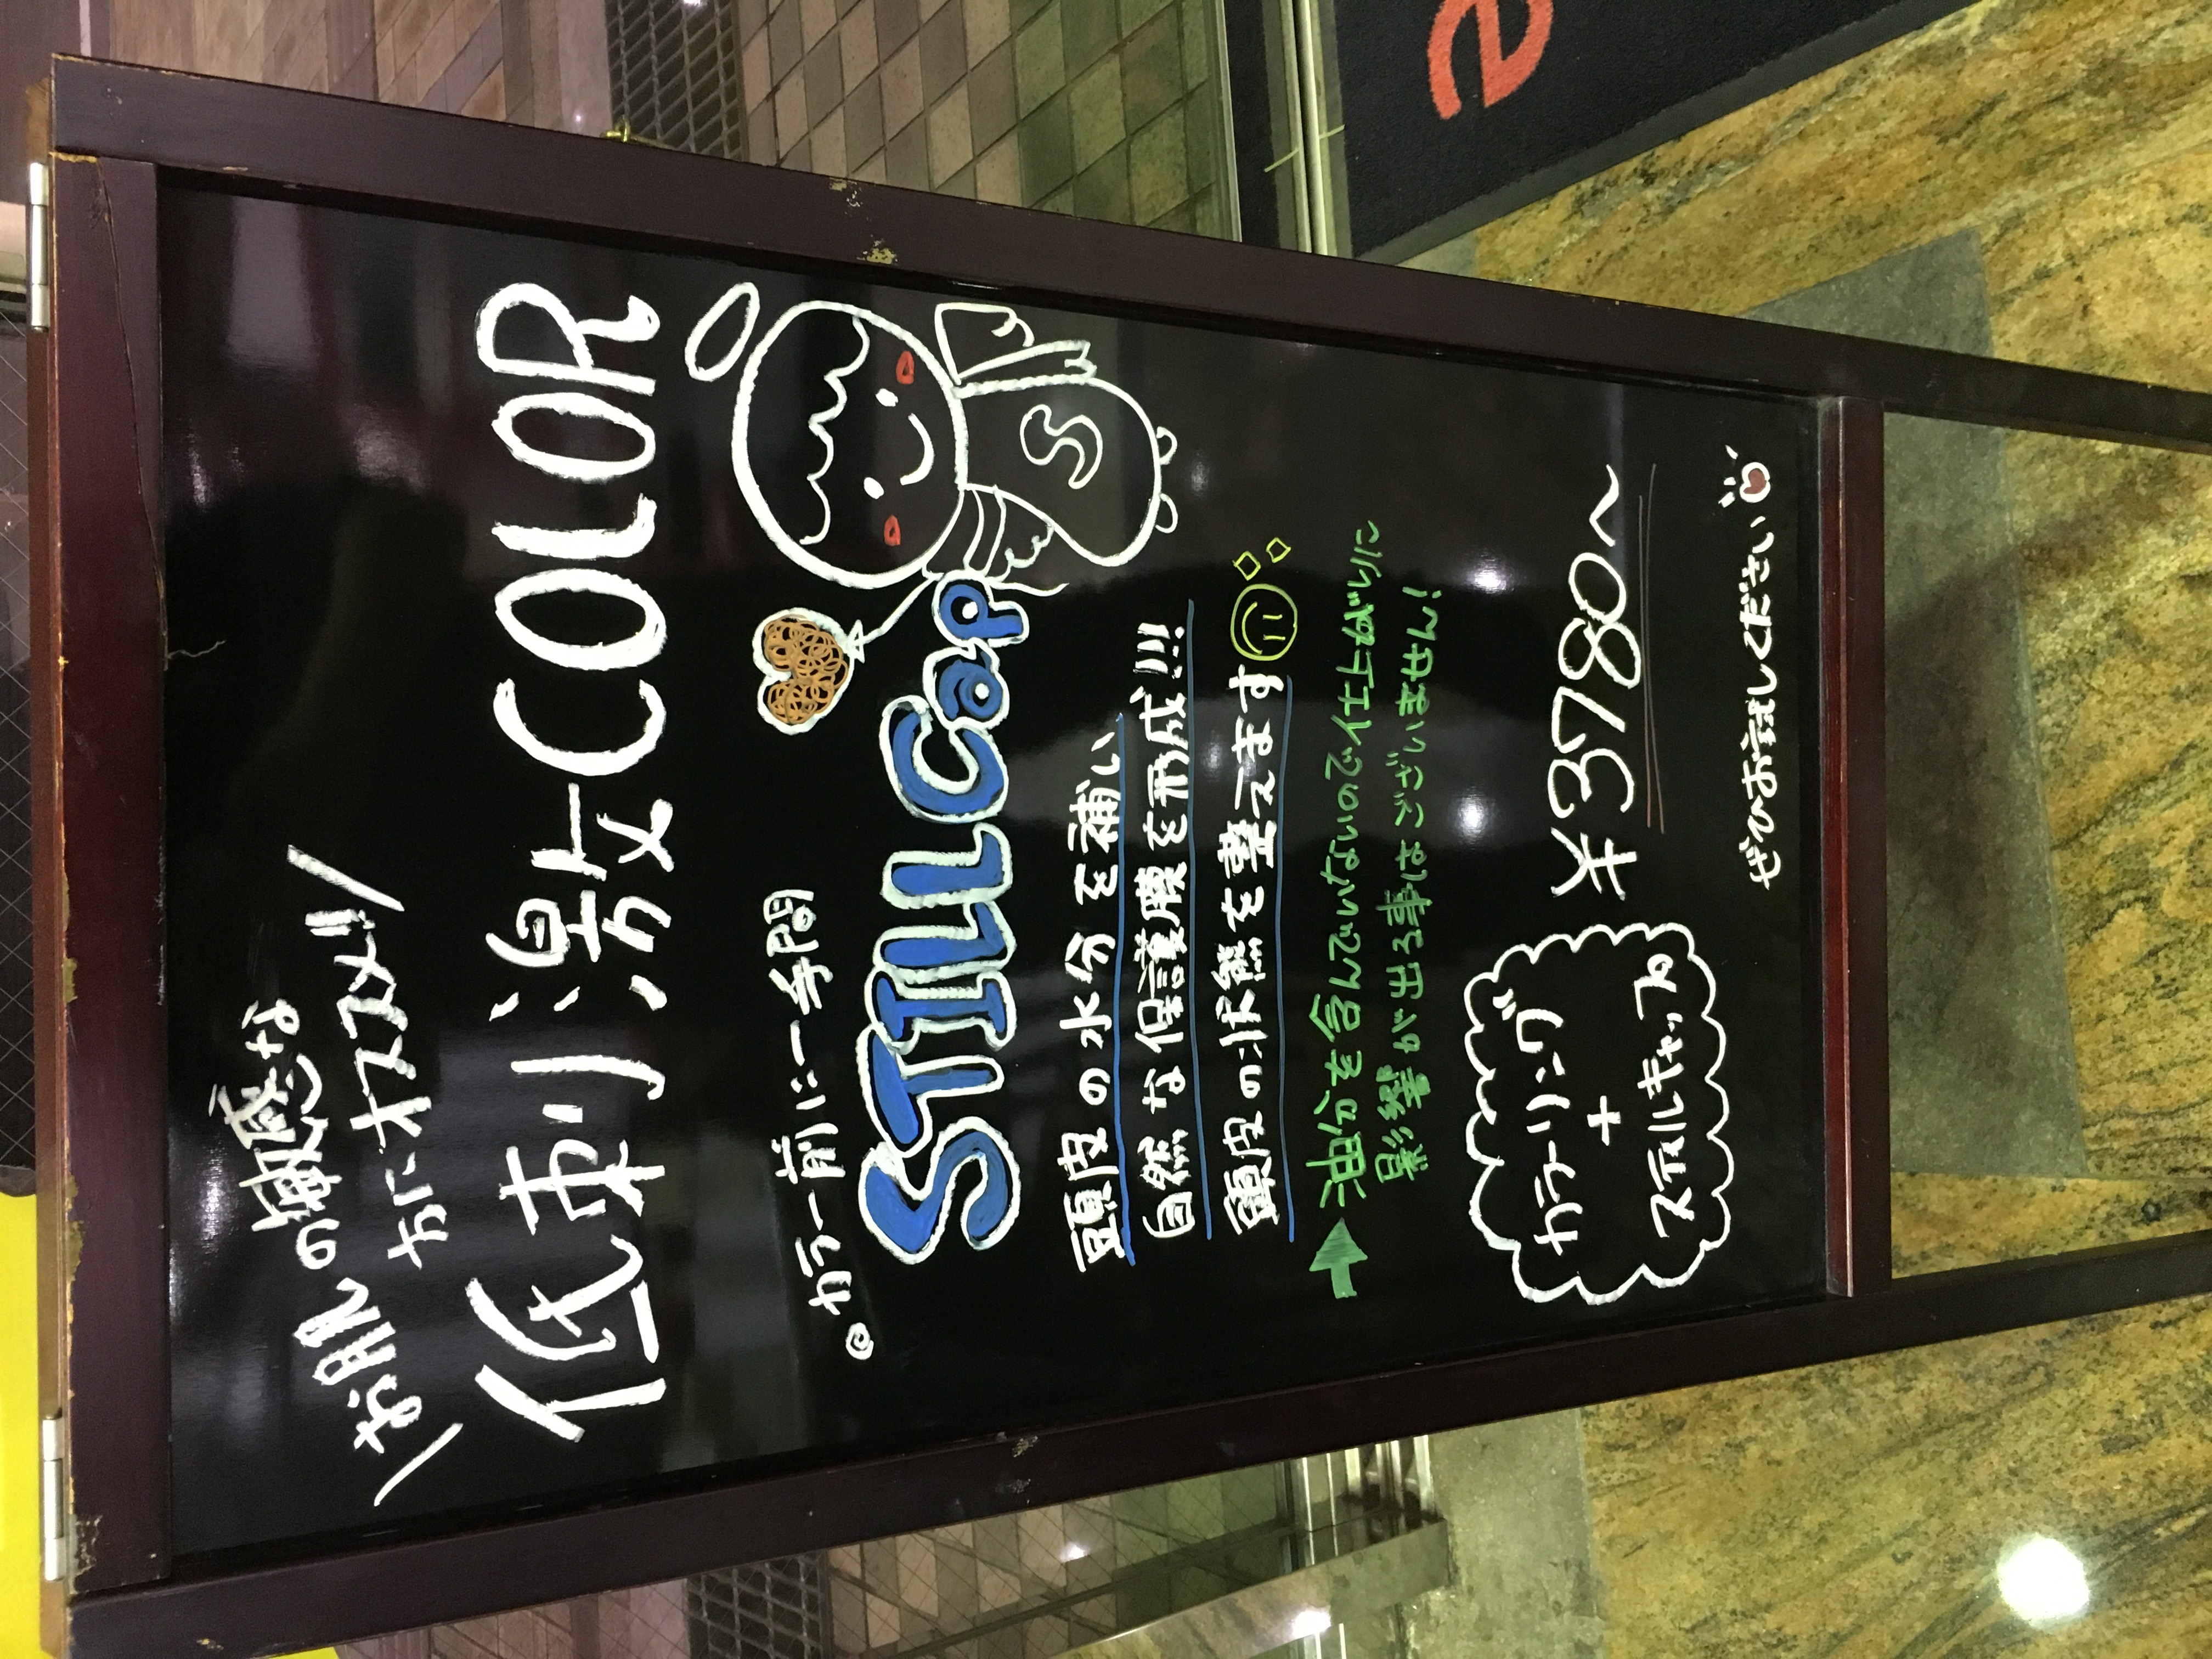 お肌の敏感な
方にオススメ!!
低刺激COLOR
◎カラー前に一手間
STILL Cap
S
頭皮の水分を補い
自然な保護膜を形成!!!
頭皮の状態を整えます
➡油分を含んでいないのでツヤやハリに
影響が出る事はございません!
カラーリング
+
スティルキャップ
¥3780〜
ぜひお試しください